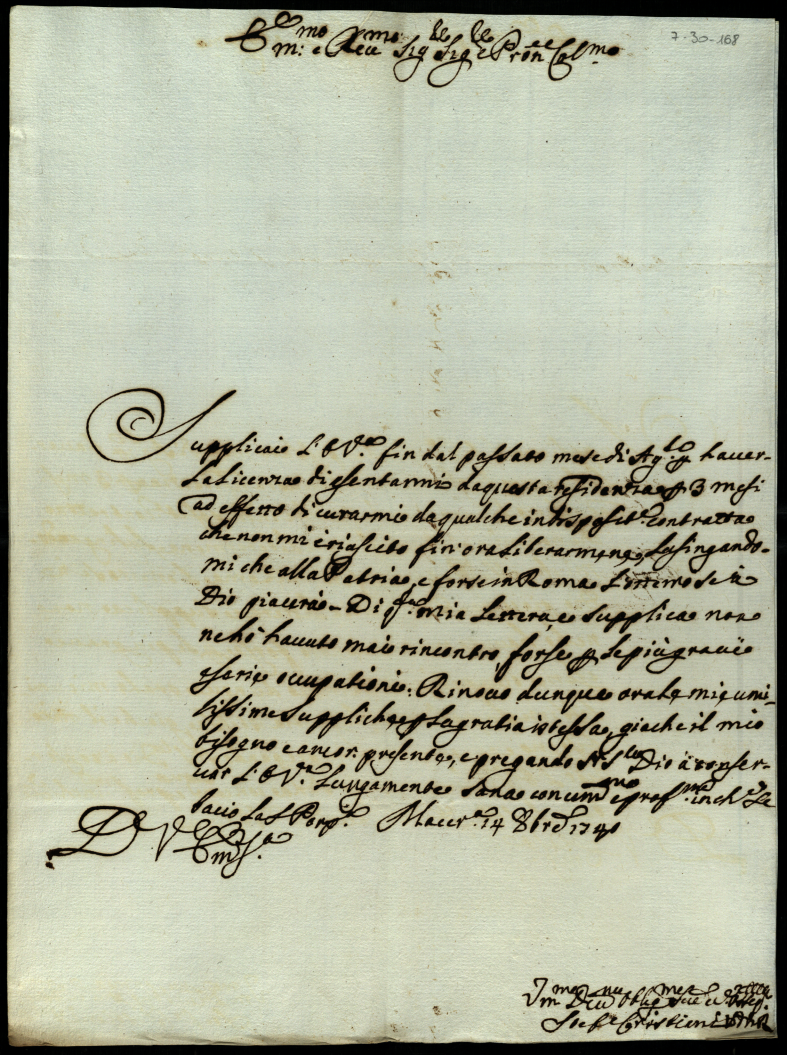 7-30-168
Em:mo e Reumo: Sigre Sigre e Prōn Colmo
Supplicai L'E.V.a fin dal passato mese di Agto p haver
la licenza di esentarmi da questa residenza p 3 mesi
ad effetto di curarmi da qualche indisposit.e contratta
che non mi è riuscito fin'ora liberarmene, lusingando-
mi che alla Patria, e forse in Roma l'otterrò se à
Dio piacerà. Di q.ta mia lettera, e supplica non
ne hò havuto mai rincontro, forse p le più gravi
e serie occupationi. Rinovo dunque ora le mie umi-
lissime suppliche p la gratia istessa, giache il mio
bisogno è ancor presente, e pregando S. Dio à conser-
var L'E.V.a lungamente sana con umo e profma inch.e le
bacio la S. Porp.a Macer.a 14 8bre 1740
D V Em.a
Um:mo Deu:mo Obblig:mo
Cristiani